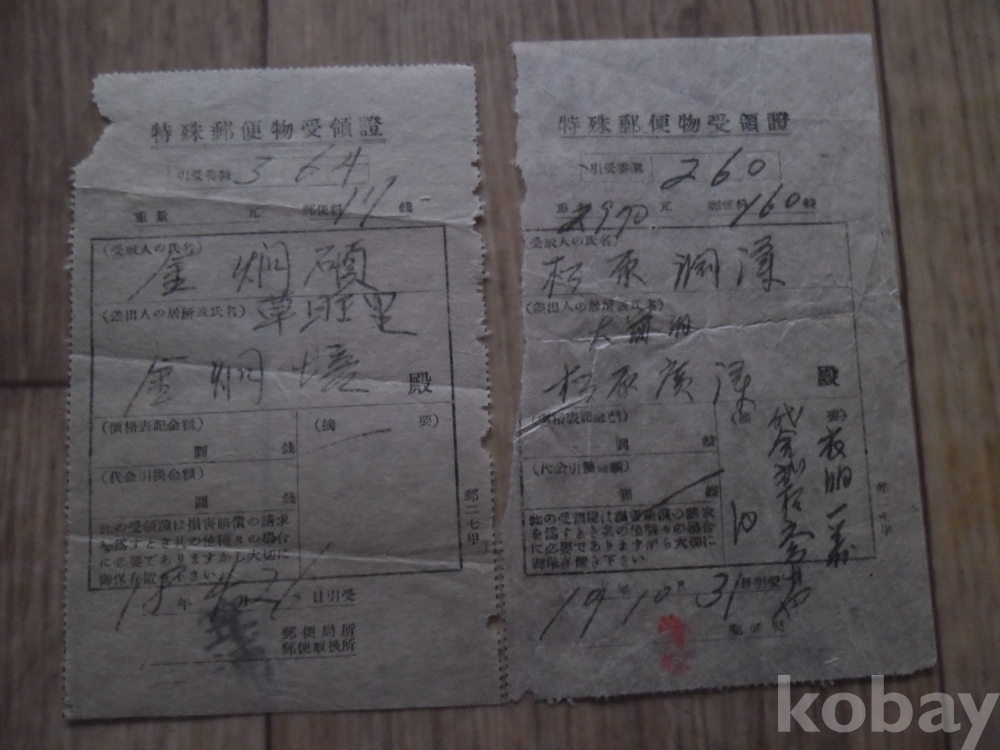 特殊郵便物受領證
引受番號 364
重量 瓦 郵便料 17 錢
(受取人の氏名)
金炯碩
(差出人の居所及氏名)
草旺里
金炯 殿
(價格表記金額) (摘要)
圓 錢
(代金引換金額)
圓 錢
此の受領證は損害賠償の請求
を爲すとき其の他種々の場合
に必要でありますから大切に
御保存置き下さい
年 月 21 日引受
郵便局所
郵便取扱所
郵二七甲
特殊郵便物受領證
引受番號 260
重量 2970 瓦 郵便料 160 錢
(受取人の氏名)
松原炯澤
(差出人の居所及氏名)
松原廣澤 殿
(價格表記金額) (摘要)
圓 錢
(代金引換金額)
圓 錢
此の受領證は損害賠償の請求
を爲すとき其の他種々の場合
に必要でありますから大切に
御保存置き下さい
19 年 10 月 31 日引受
kobay